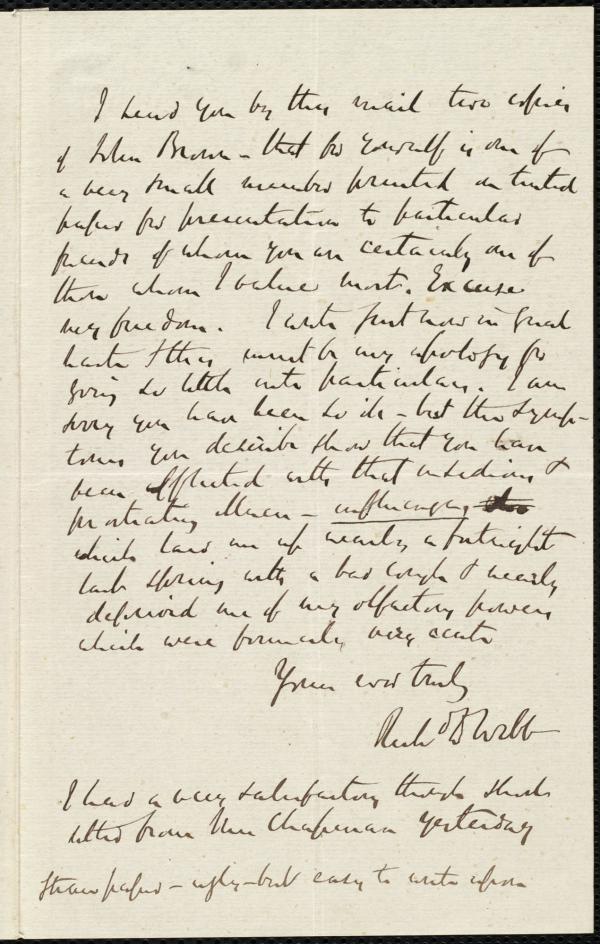 I send you by this mail two copies
of John Brown - that for yourself is one of
a very small number printed on tinted
paper for presentation to particular
friends of whom you are certainly one of
those whom I value most. Excuse
my freedom. I write just now in great
haste & this must be my apology for
going so little into particulars. I am
sorry you have been so ill - but the symp-
toms you describe show that you have
been afflicted with that insidious &
prostrating illness - influenza,
which laid me up nearly a fortnight
last spring with a bad cough & nearly
deprived me of my olfactory powers
which were formerly very acute
Yours ever truly
Richd D Webb
I had a very satisfactory though short
letter from Mrs Chapman yesterday
Straw paper - ugly - but easy to write upon